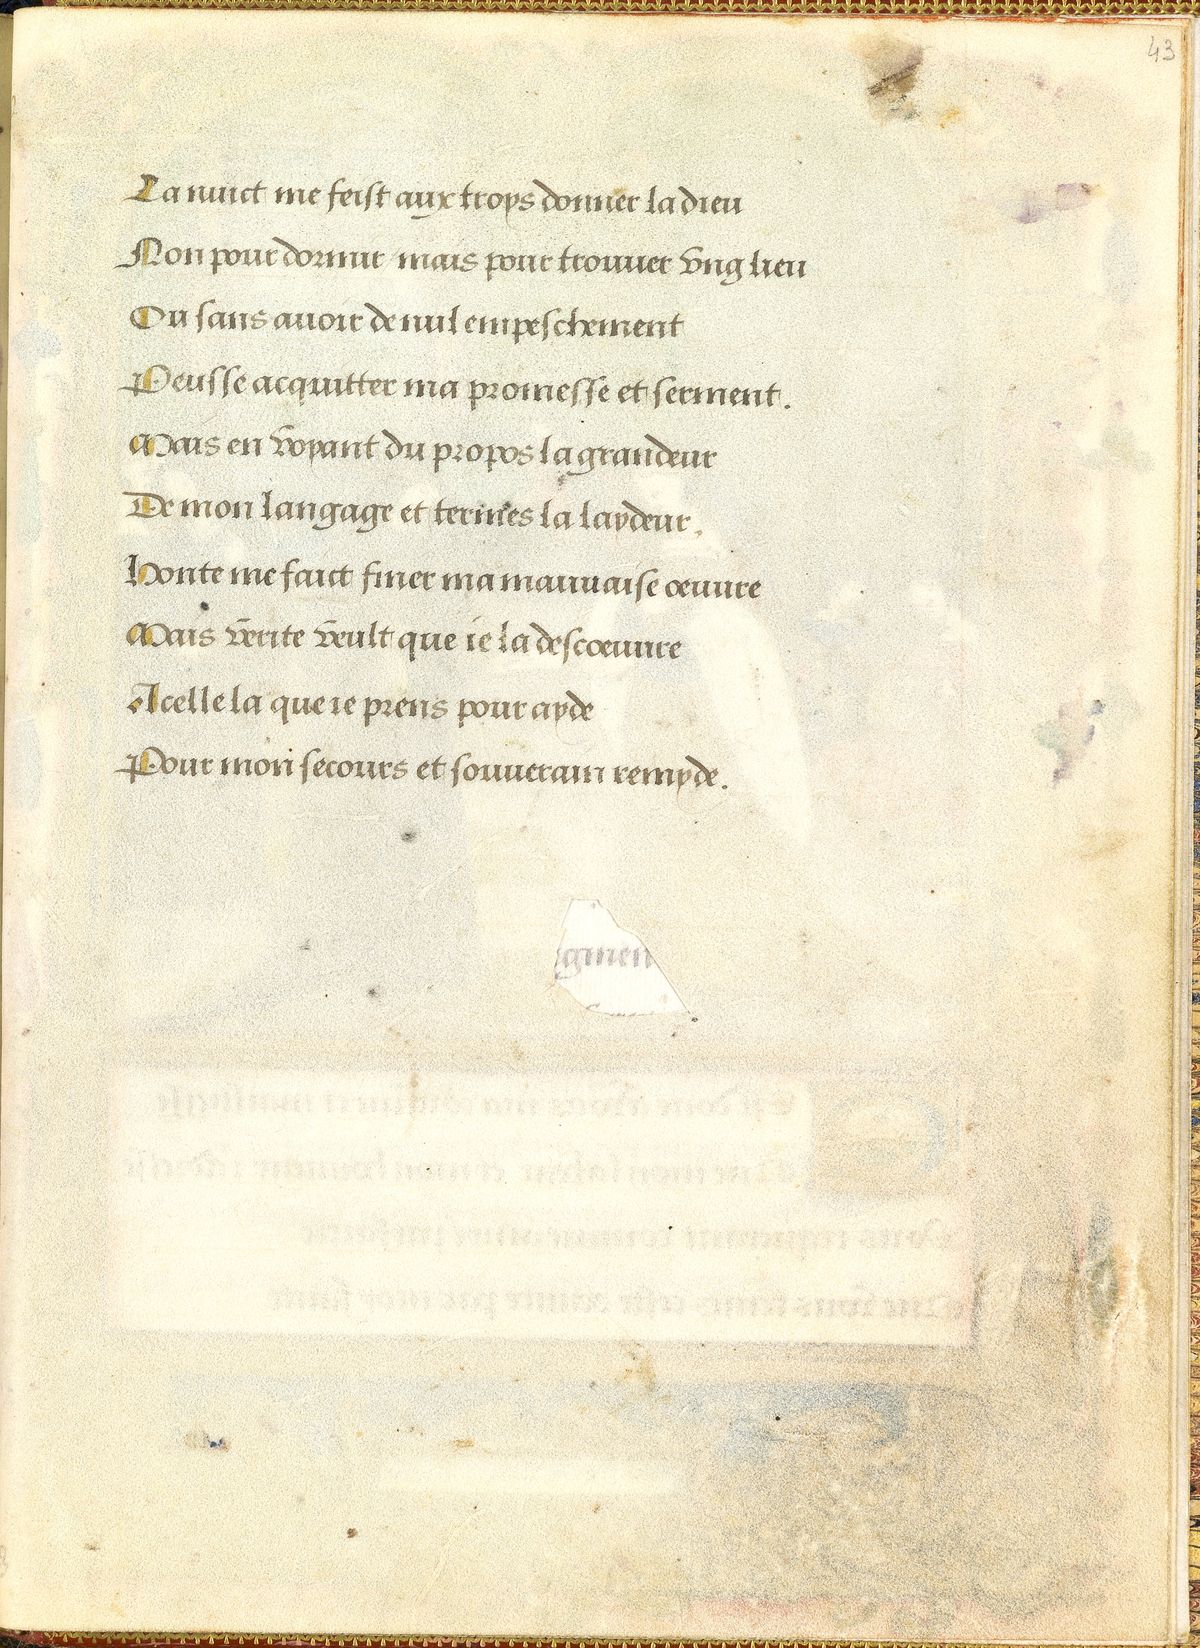 43
La nuict me feist aux troys donner ladieu
Non pour dormir mais pour trouuer vng lieu
Ou sans auoir de nul empeschement
Peusse acquitter ma promesse et serment.
Mais en voyant du propos la grandeur
De mon langage et termes la laydeur.
Honte me faict finer ma mauuaise oeuure
Mais verite veult que ie la descoeuure
Acelle la que ie prens pour ayde
Pour mon secours et souuerain remyde.